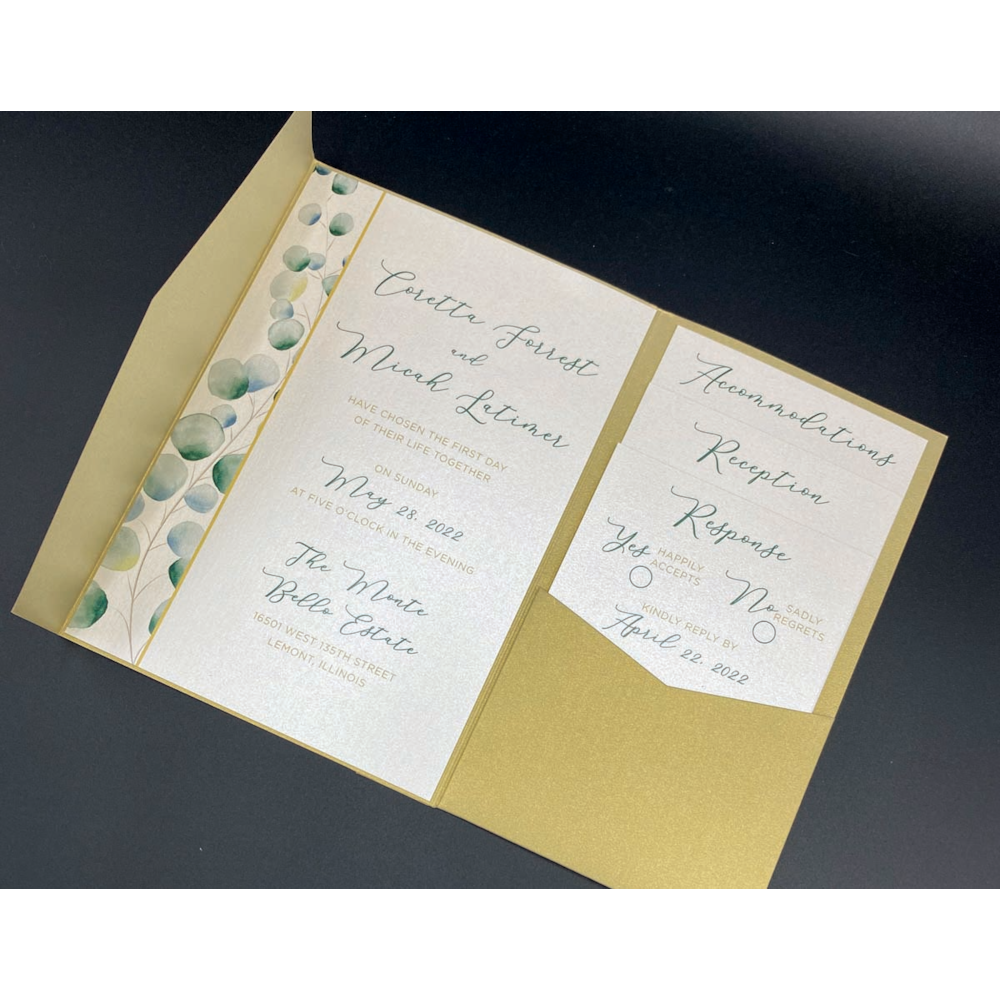 Coretta Forrest
and
Micah Latimer
HAVE CHOSEN THE FIRST DAY
OF THEIR LIFE TOGETHER
ON SUNDAY
May 28, 2022
AT FIVE O'CLOCK IN THE EVENING
The Monte
Bello Estate
16501 WEST 135TH STREET
LEMONT, ILLINOIS
Accommodations
Reception
Response
Yes HAPPILY
ACCEPTS
No SADLY
REGRETS
KINDLY REPLY BY
April 22, 2022